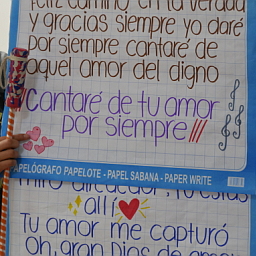 feliz camino en tu verdad
y gracias siempre yo daré
por siempre cantaré de
aquel amor del digno
¡Cantaré de tu amor
por siempre!!!
PELÓGRAFO PAPELOTE - PAPEL SABANA - PAPER WRITE
miro alrededor, tu estás
allí
Tu amor me capturó
Oh, gran Dios de amor